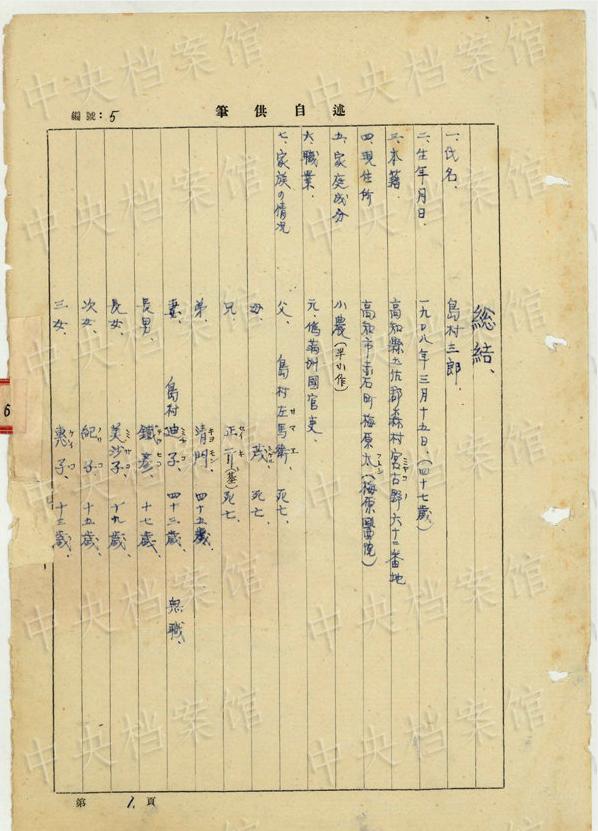 筆供自述
編號：5
総結、
一、氏名、 島村三郎
二、生年月日、 一九〇八年三月十五日、(四十七歳)
三、本籍、 高知縣土佐郡森村宮古野六十二番地
四、現住所 高知市 石町梅原太(梅原醫院)
五、家庭成分 小農(半小作)
六、職業、 元、偽満州國官吏、
七、家族の情况 父、 島村左馬衛 サマエ 死亡、
母、 茂 死亡、
兄、 死亡、
弟、 清門 キヨモン 四十五歳、
妻、 島村迪子、 四十三歳、 無職、
長男、 鐵彦、 十七歳、
長女、 美沙子、 ミサコ 十九歳、
次女、 紀子、 十五歳、
三女、 惠子、 ケイコ 十三歳、
第 1. 頁
6
中央档案馆